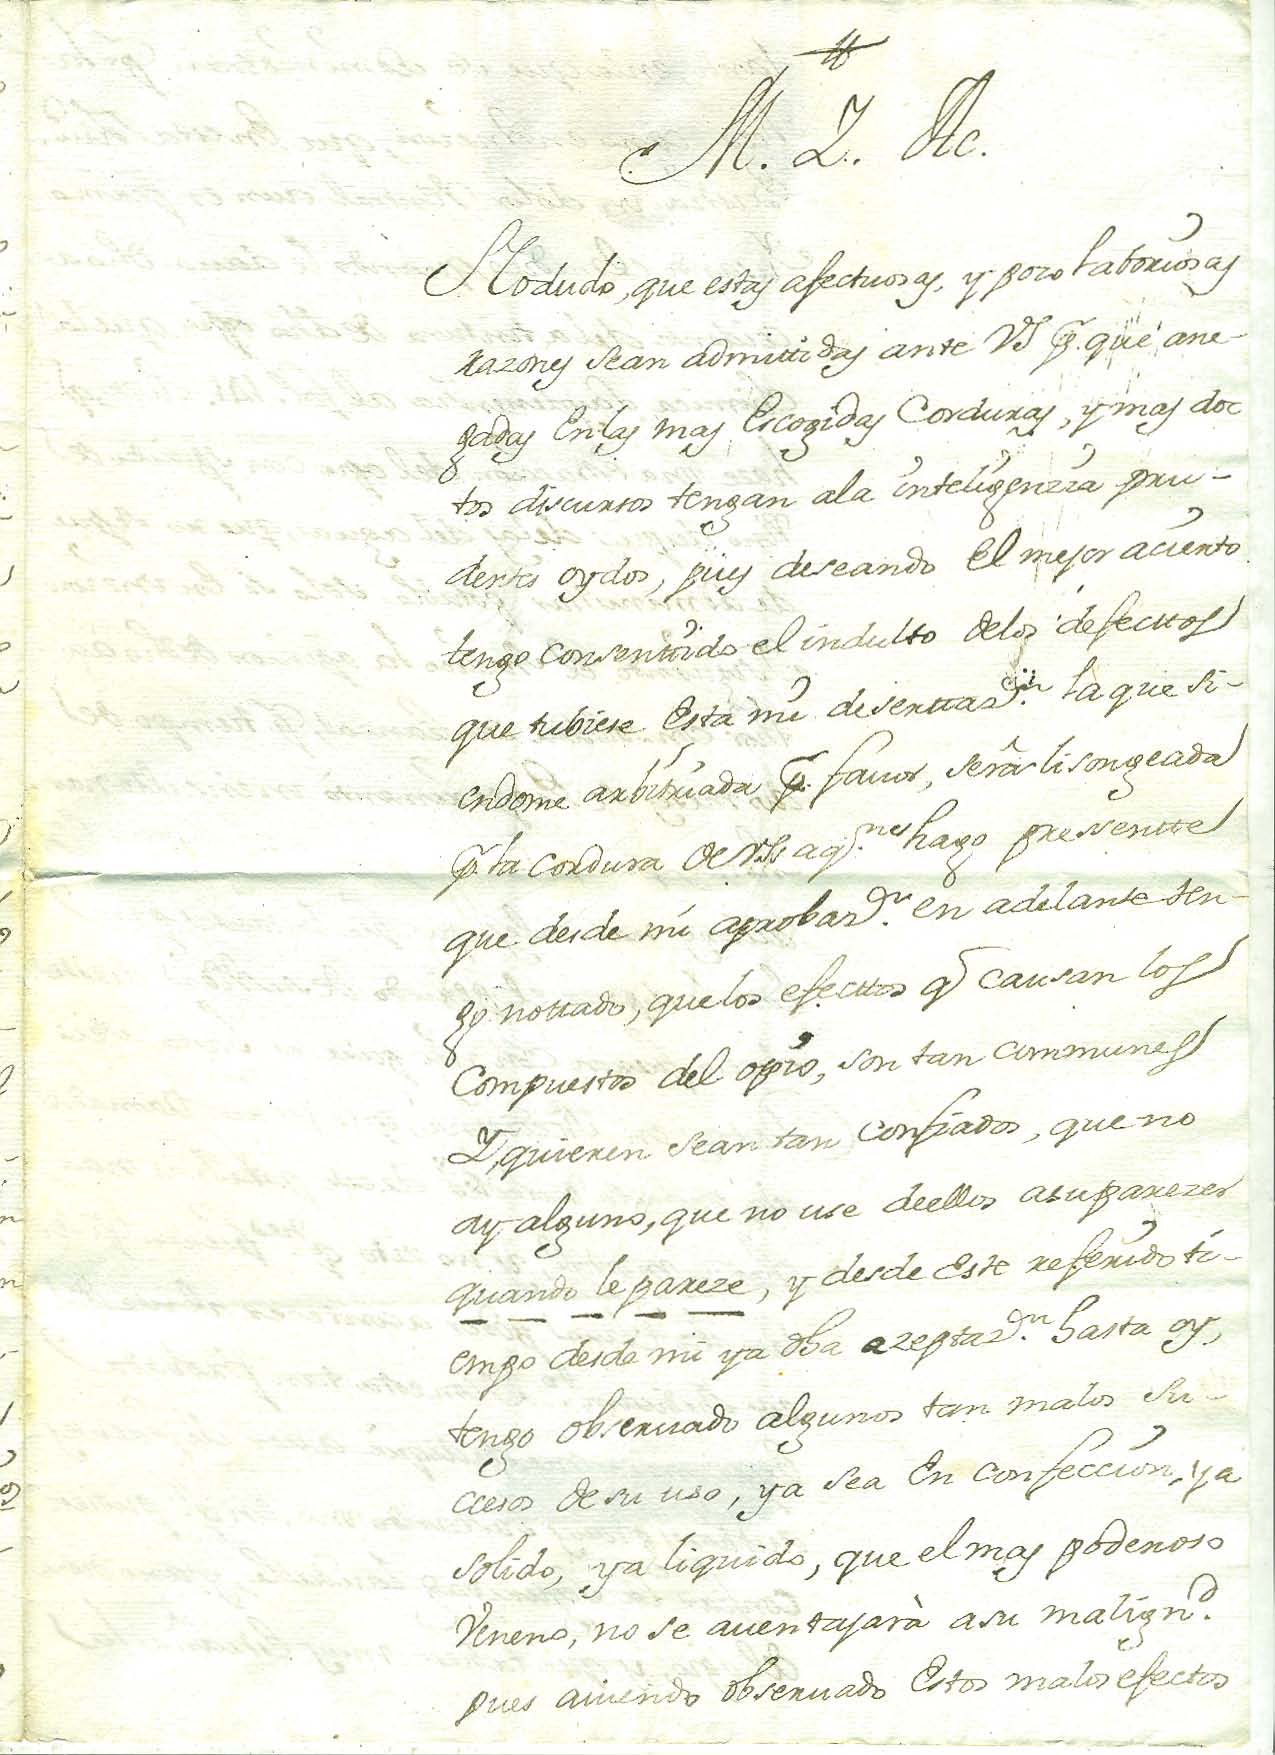 M. Y. Ac.
No dudo, que estas afectuosas, y poco laboriosas
razones sean admittidas ante VS pr. que ane-
gadas en las mas Escogidas Corduras, y mas doc
tos discursos tengan a la inteligenzia pru-
dentes oydos, pues deseando El mejor acierto
tengo consentido el indulto delos defecttos
que tubiese Esta mi diserttazon. la que si-
endome arbitriada pr. favor, serà lisongeada
pr. la cordura de VSs aqnes. hago pressentte
que desde mi aprobazon. en adelante ten-
go nottado, que los efecttos q causan los
Compuestos del opio, son tan communes
Y, quieren sean tan confiados, que no
ay alguno, que no use deellos asuparezer
quando le pareze, y desde Este referido ti-
empo desde mi ya dha azeptazon. hasta oy,
tengo observado algunos tan malos su-
ccesos de su uso, ya sea En confeccion, ya
solido, ya liquido, que el mas poderoso
Veneno, no se aventajarà a su malignd.
pues aviendo observado Estos malos efectos